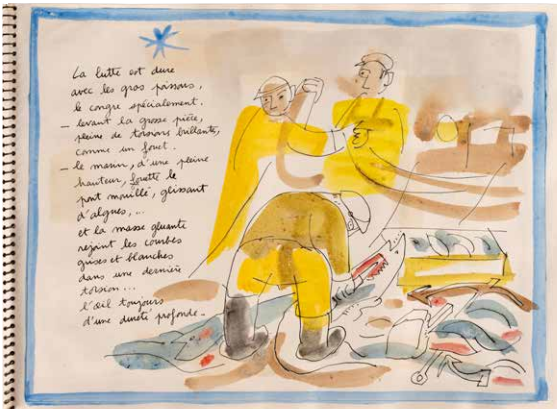 La lutte est dure
avec les gros poissons,
le congre spécialement.
– levant la grosse pièce,
pleine de torsions brillantes,
comme un fouet.
– le marin, d'une pleine
hauteur, fouette le
pont mouillé, glissant
d'algues, ...
et la masse gluante
rejoint les courbes
grises et blanches
dans une dernière
torsion ...
l'œil toujours
d'une dureté profonde..